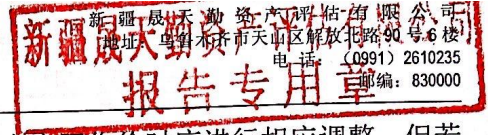 新疆晟天勤资产评估有限公司
地址：乌鲁木齐市天山区解放北路90号6楼
电话：（0991）2610235
邮编：830000
新疆晟天勤资产评估有限公司
报告专用章
进行相应调整，但若